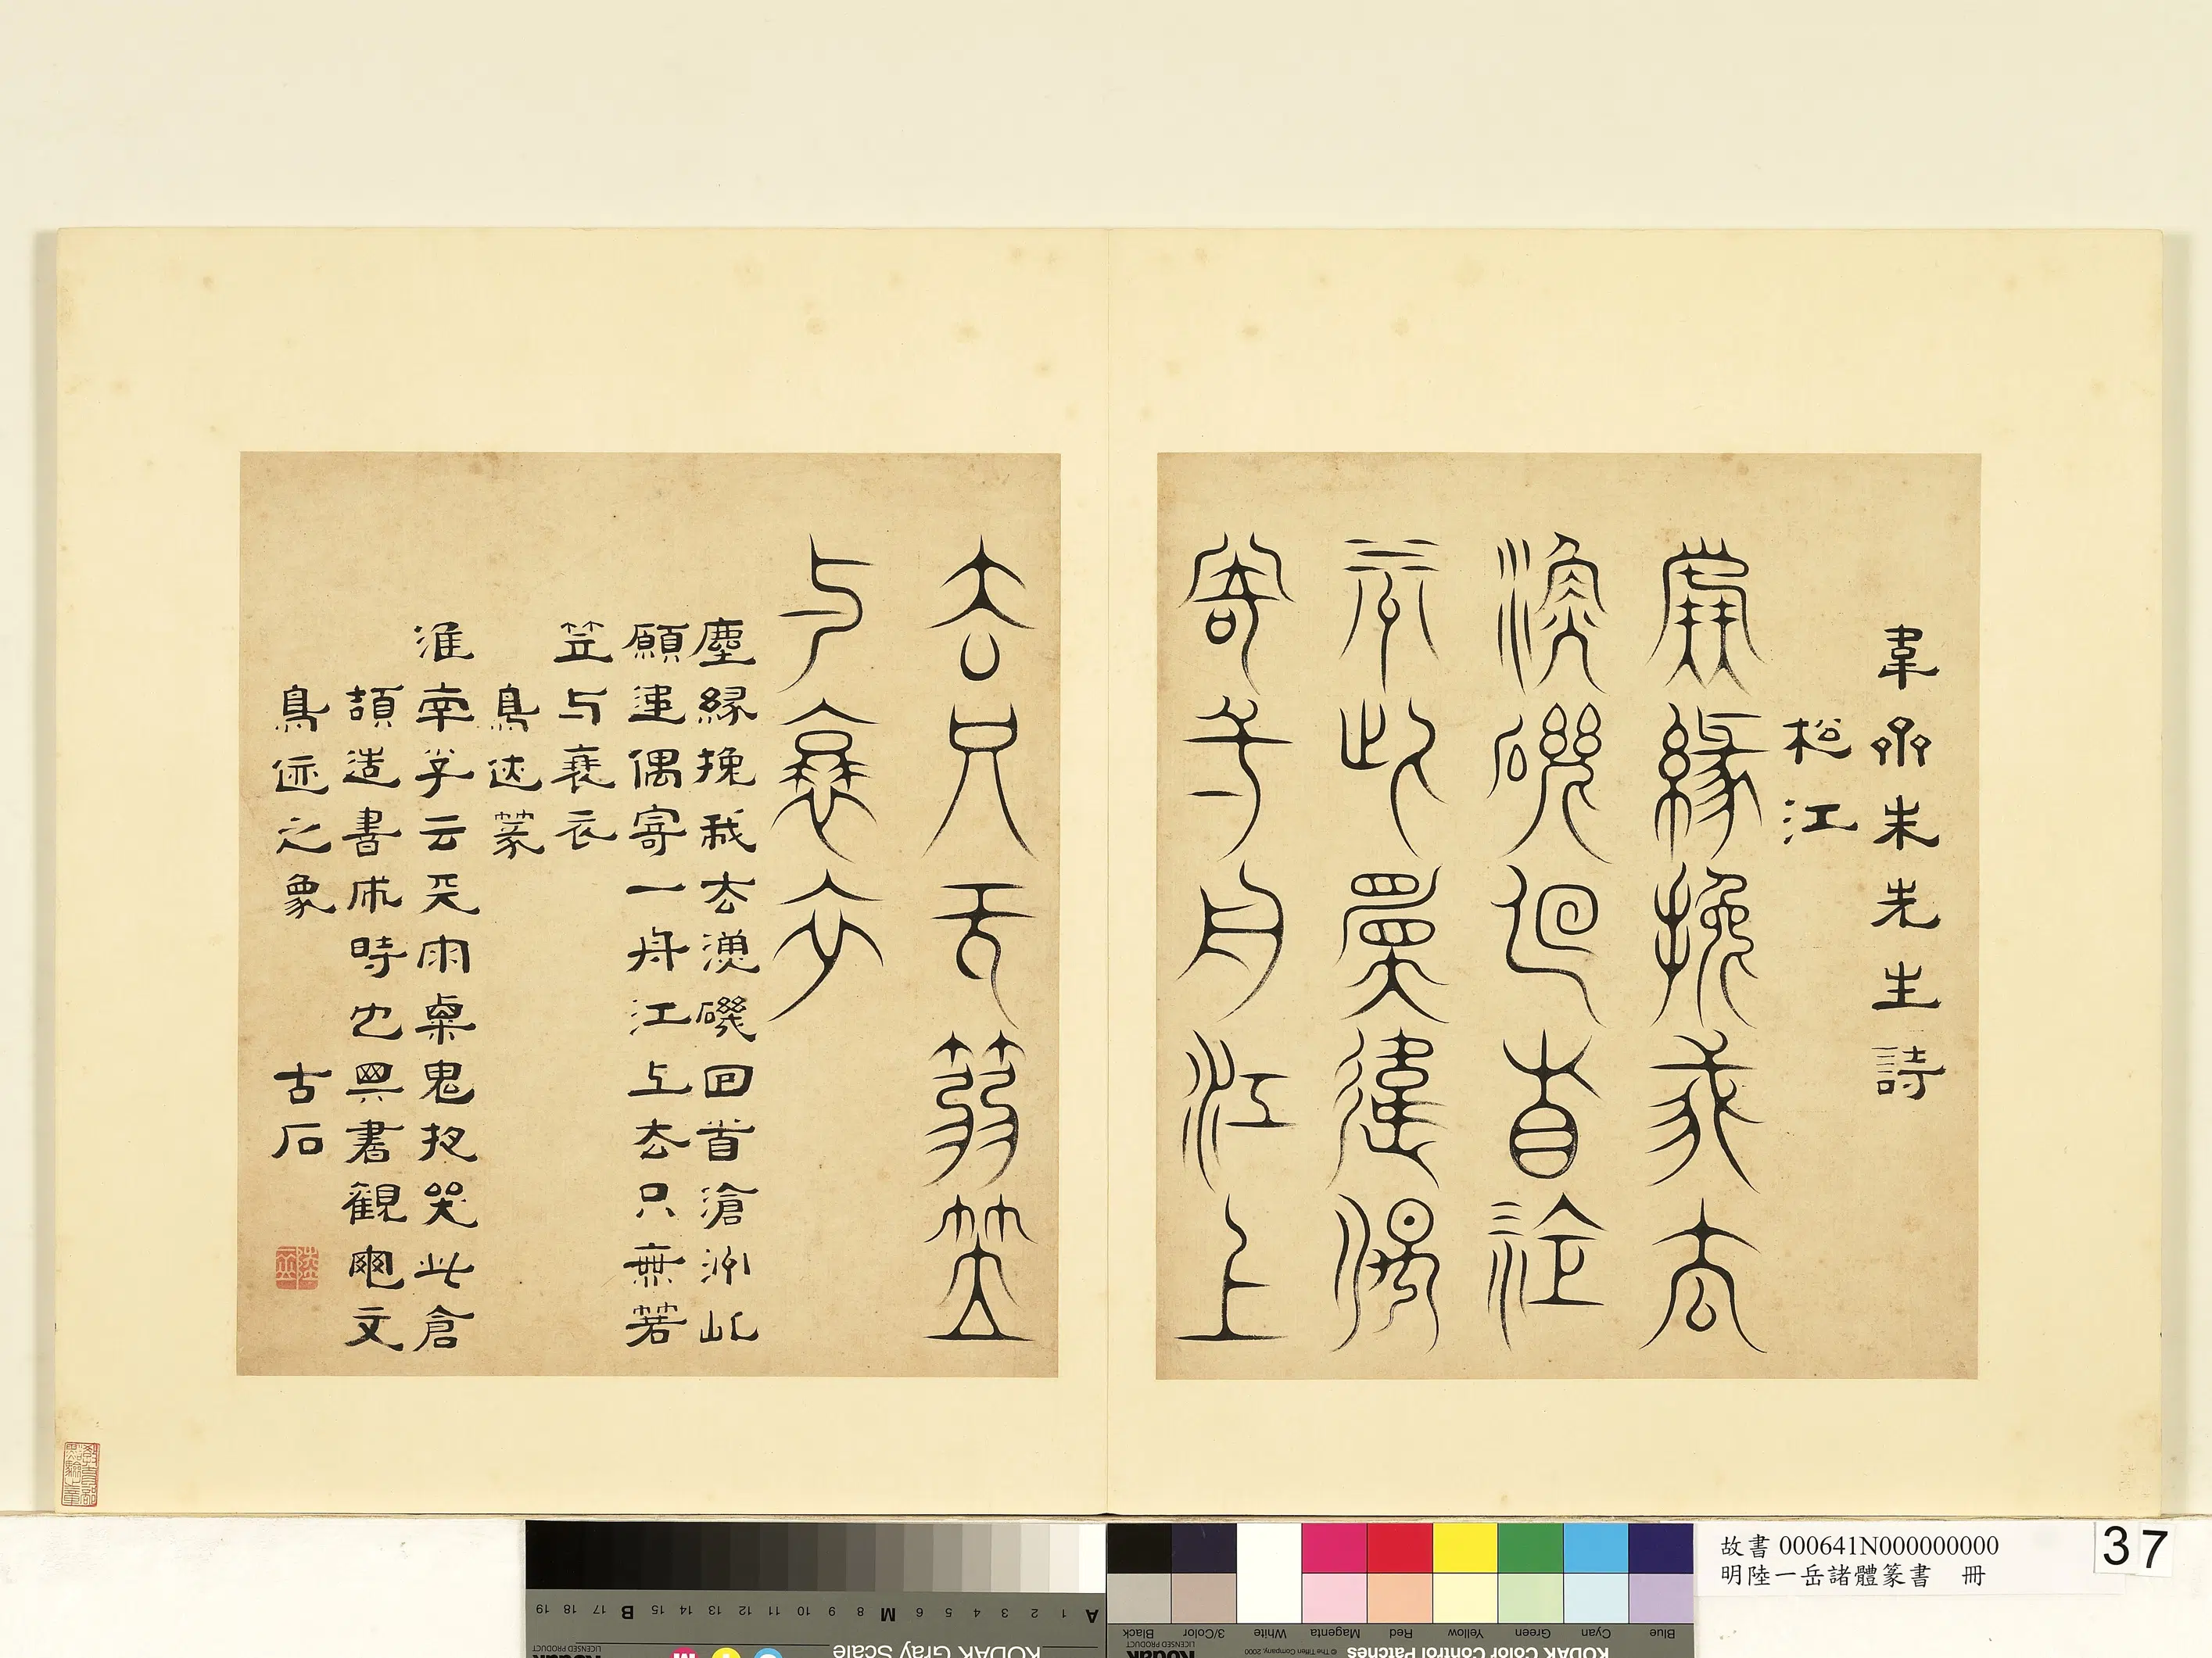 韋齊朱先生詩
松江
塵緣挽我去
漁磯回首滄
洲此願違偶
寄一舟江上
去只无蒻笠
与蓑衣
塵緣挽我去漁磯回首滄洲此
願違偶寄一舟江上去只無箬
笠与蓑衣
鳥迹篆
淮南子云天雨粟鬼夜哭此倉
頡造書成時也其書觀文
鳥迹之象 古石
故書 000641N000000000
明陸一岳諸體篆書 冊
37
KODAK Gray Scale
KODAK Color Control Patches
Blue Cyan Green Yellow Red Magenta White 3/Color Black
LICENSED PRODUCT
© The Tiffen Company, 2000
A 1 2 3 4 5 6 M 8 9 10 11 12 13 14 15 B 17 18 19